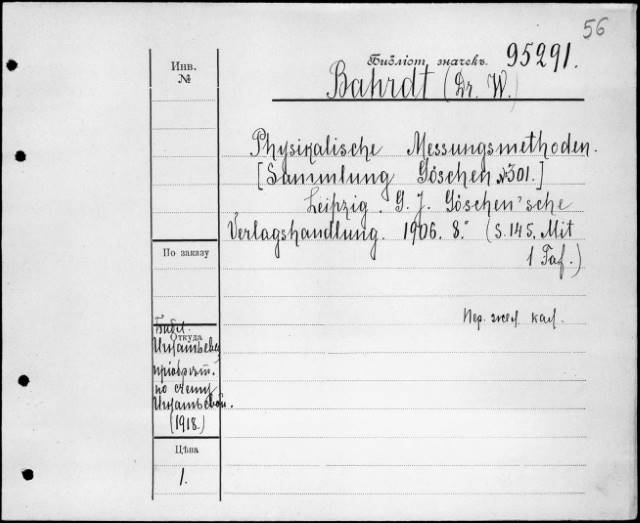 56
Инв. №
Библіот. значекъ. 95291.
Bahrdt (Dr. W.)
Physikalische Messungsmethoden.
[Sammlung Göschen №301.]
Leipzig. G. J. Göschen'sche
Verlagshandlung. 1906. 8.° (S. 145. Mit
1 Taf.)
По заказу
Пер. жел. кал.
Библ.
Откуда
Игнатьева
пріобрѣт.
по счету
Игнатьевой.
(1918.)
Цѣна
1.